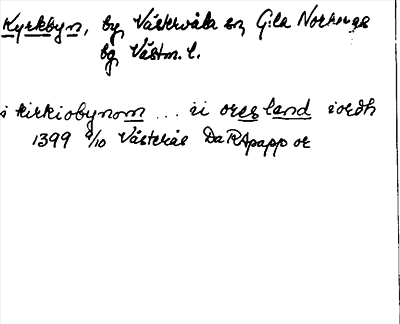 Kyrkbyn, by, Västervåla sn, G:la Norbergs
bg Västm. l.
i kirkiobynom ... ii ores land iordh
1399 9/10 Västerås DaRApapp or